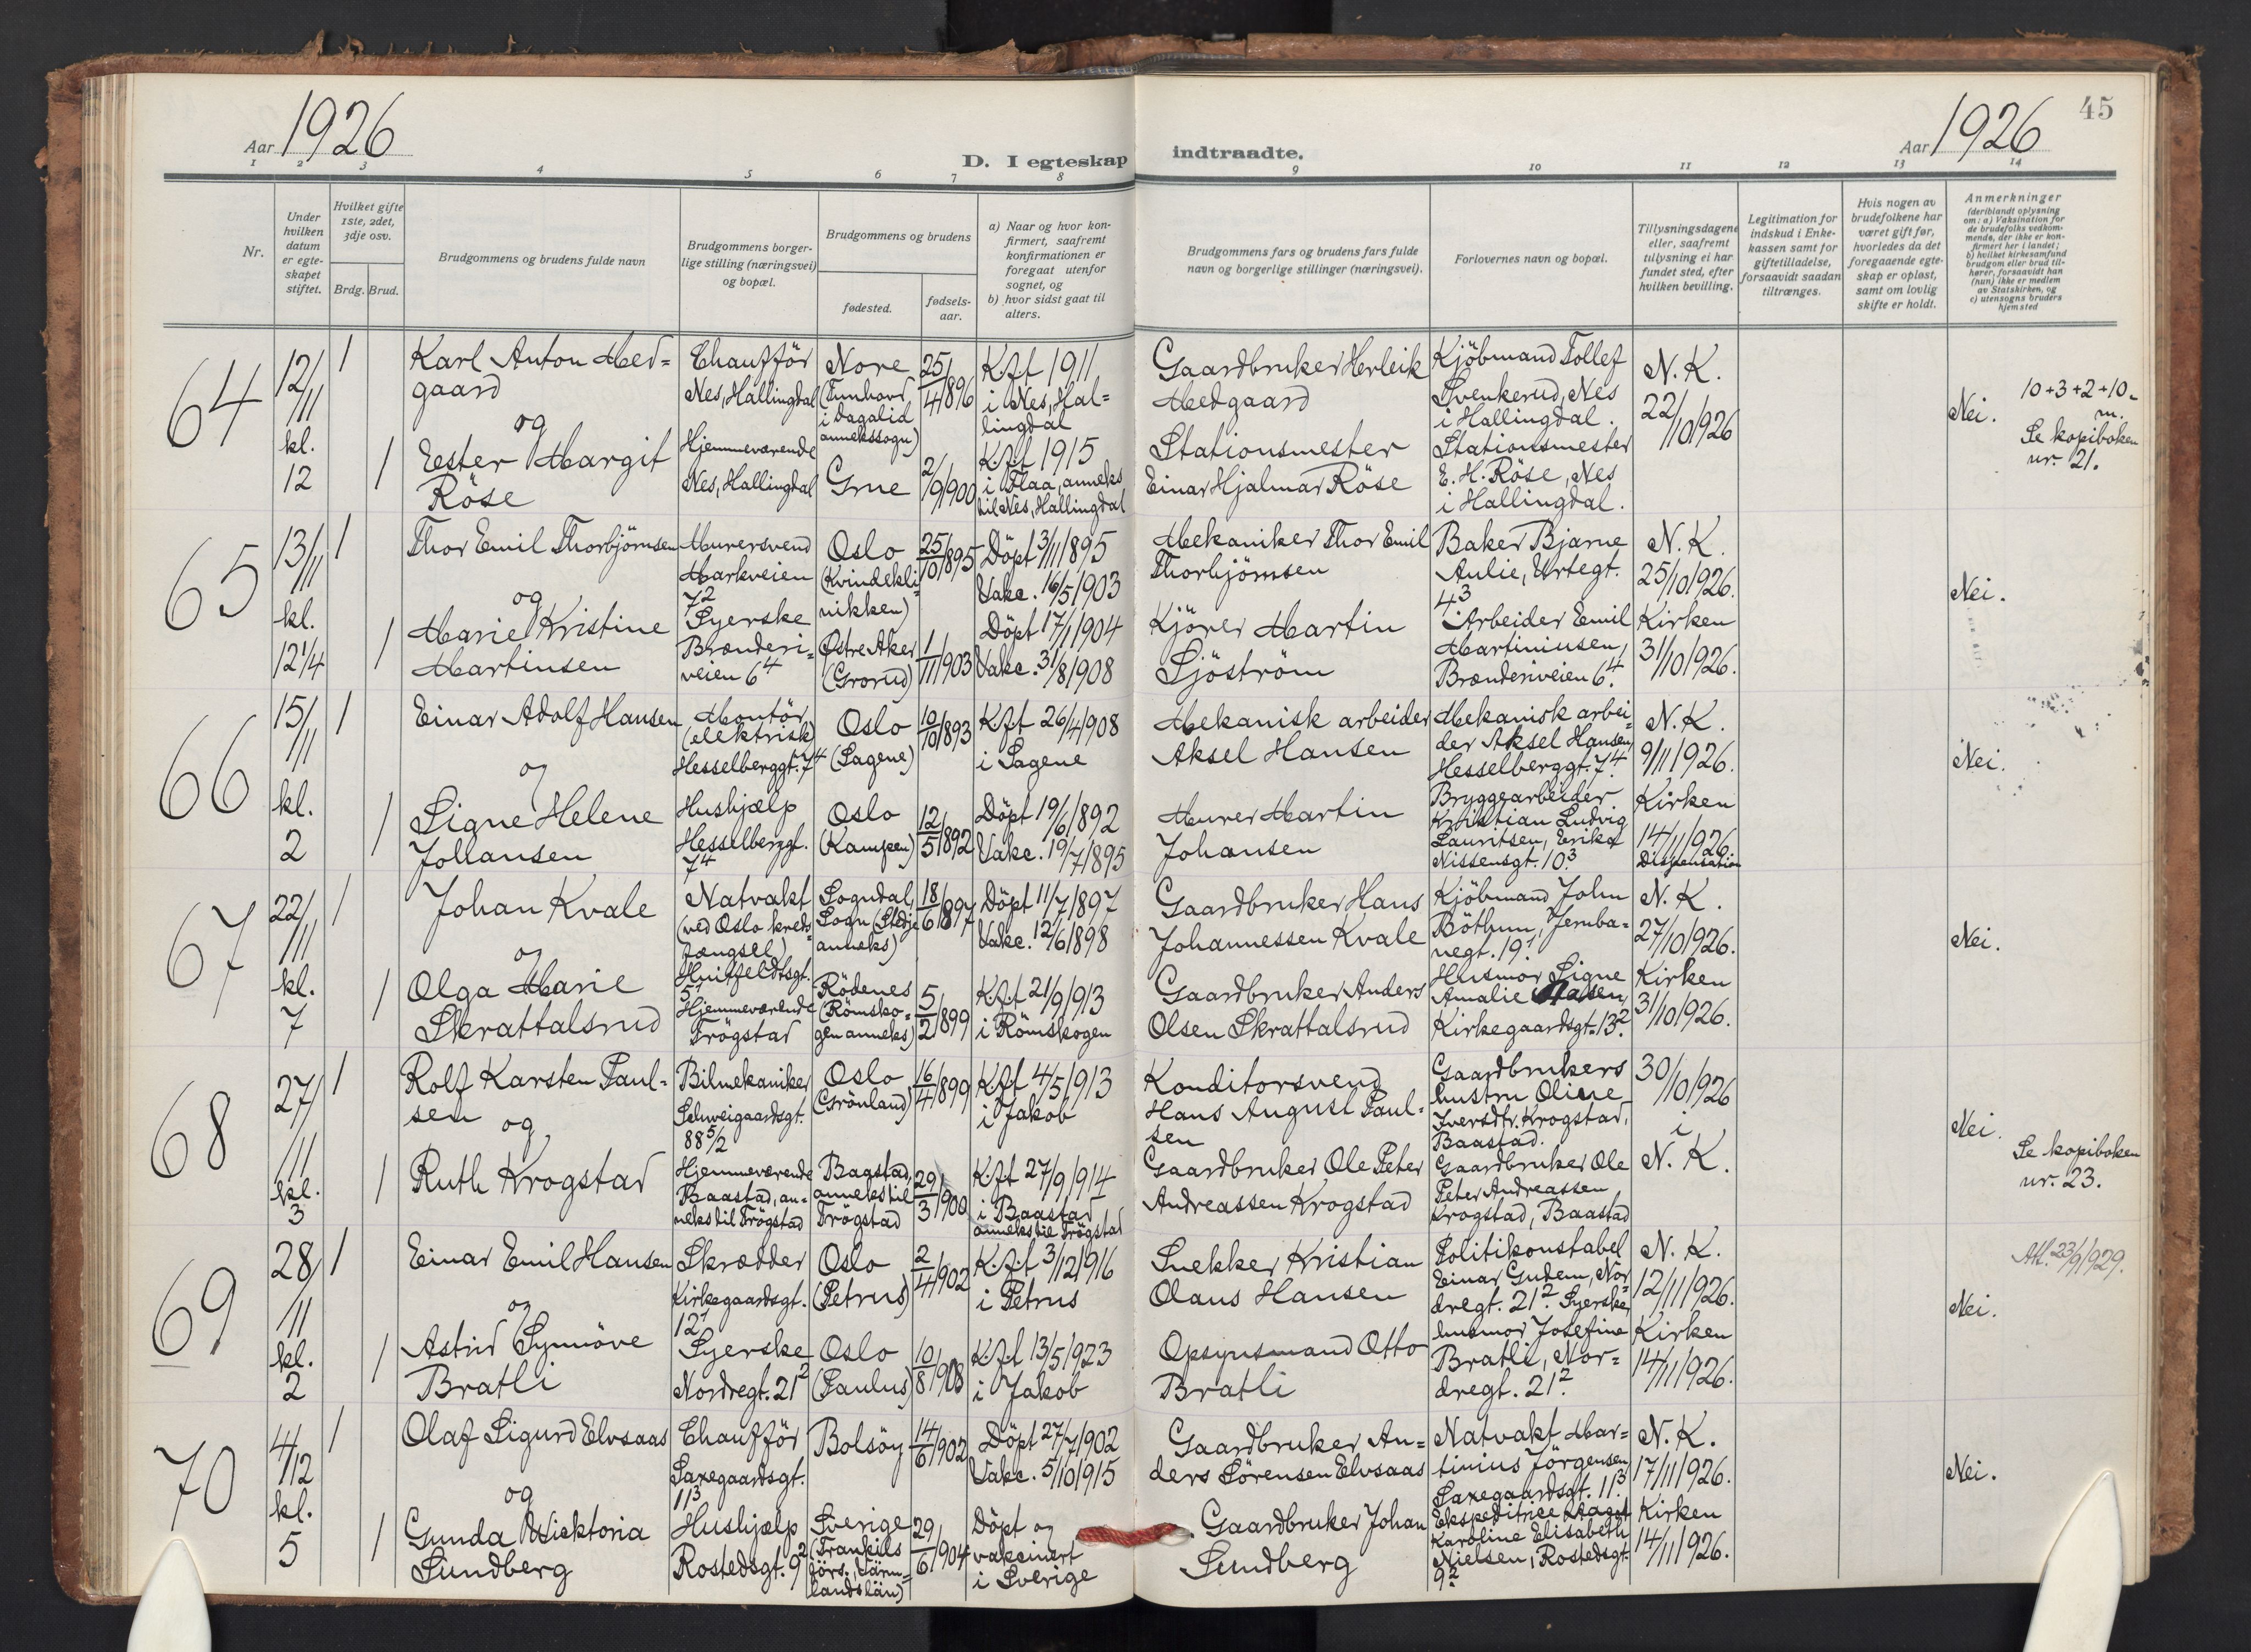 Aar 1926
D. I egteskap indtraadte.
Aar 1926
45
1 2 3 4 5 6 7 8 9 10 11 12 13 14
Nr.
Under hvilken datum er egteskapet stiftet.
Hvilket gifte 1ste, 2det, 3dje osv.
Brdg. Brud.
Brudgommens og brudens fulde navn
Brudgommens borger-
lige stilling (næringsvei)
og bopæl.
Brudgommens og brudens
fødested.
fødsels-
aar.
a) Naar og hvor kon-
firmert, saafremt
konfirmationen er
foregaat utenfor
sognet, og
b) hvor sidst gaat til
alters.
Brudgommens fars og brudens fars fulde
navn og borgerlige stillinger (næringsvei).
Forlovernes navn og bopæl.
Tillysningsdagene
eller, saafremt
tillysning ei har
fundet sted, efter
hvilken bevilling.
Legitimation for
indskud i Enke-
kassen samt for
giftetilladelse,
forsaavidt saadan
tiltrænges.
Hvis nogen av
brudefolkene har
været gift før,
hvorledes da det
foregaaende egte-
skap er opløst,
samt om lovlig
skifte er holdt.
Anmerkninger
(deriblandt oplysning
om: a) Vaksination for
de brudefolks vedkom-
mende, der ikke er kon-
firmert her i landet;
b) hvilket kirkesamfund
brudgom eller brud til-
hører, forsaavidt han
(hun) ikke er medlem
av Statskirken, og
c) utensogns bruders
hjemsted
64
12/11
kl.
12
1
Karl Anton Med-
gaard
og
Chauffør
Nes, Hallingdal
Nore
(Tunhovd,
i Dagalid
annekssogn)
25/4 1896
K.ft 1911
i Nes, Hal-
lingdal
Gaardbruker Herleik
Medgaard
Kjöbmand Tollef
Svenkerud, Nes
i Hallingdal.
N.K.
22/10 1926
Nei.
10+3+2+10.
m.
Se kopiboken
nr. 21.
1
Ester Margit
Röse
Hjemmeværende
Nes, Hallingdal
Grue
2/9 1900
K.ft 1915
i Flaa, anneks
til Nes, Hallingdal
Stationsmester
Einar Hjalmar Röse
Stationsmester
E. H. Röse, Nes
i Hallingdal.
65
13/11
kl.
12 1/4
1
Thor Emil Thorbjörnsen
og
Murersvend
Markveien
7²
Oslo
(Kvindekli-
nikken)
25/10 1895
Döpt 3/11 1895
Vakc. 16/5 1903
Mekaniker Thor Emil
Thorbjörnsen
Baker Bjarne
Aulie, Urtegt.
4³
N.K.
25/10 1926.
Nei.
1
Marie Kristine
Martinsen
Syerske
Brænderi-
veien 6⁴
Østre Aker
(Grorud)
1/11 1903
Döpt 17/1 1904
Vakc. 31/8 1908
Kjörer Martin
Sjöström
Arbeider Emil
Martiniusen,
Brænderiveien 6⁴.
Kirken
31/10 1926.
66
15/11
kl.
2
1
Einar Adolf Hansen
og
Montör
(elektrisk)
Hesselberggt. 7⁴
Oslo
(Sagene)
10/10 1893
K.ft 26/4 1908
i Sagene
Mekanisk arbeider
Aksel Hansen
Mekanisk arbei-
der Aksel Hansen,
Hesselberggt. 7⁴.
N.K.
9/11 1926.
Nei.
1
Signe Helene
Johansen
Hushjælp
Hesselberggt.
7⁴
Oslo
(Kampen)
12/5 1892
Döpt 19/6 1892
Vakc. 19/7 1895
Murer Martin
Johansen
Bryggearbeider
Kristian Ludvig
Lauritsen, Erika
Nissensgt. 10³
Kirken
14/11 1926.
Dispensation
67
22/11
kl.
7
1
Johan Kvale
og
Natvakt
(ved Oslo kreds-
fængsel)
Huitfeldtsgt.
5¹
Sogndal,
Sogn (Stedje
anneks)
18/6 1897
Döpt 11/7 1897
Vakc. 12/6 1898
Gaardbruker Hans
Johannessen Kvale
Kjöbmand John
Böthun, Jernba-
negt. 19¹.
N.K.
27/10 1926.
Nei.
1
Olga Marie
Skrattalsrud
Hjemmeværende
Trögstad
Rödenes
(Römsko-
gen anneks)
5/2 1899
K.ft 21/9 1913
i Römskogen
Gaardbruker Anders
Olsen Skrattalsrud
Husmor Signe
Amalie
Kirkegaardsgt. 13².
Kirken
31/10 1926.
68
27/11
kl.
3
1
Rolf Karsten Paul-
sen
og
Bilmekaniker
Schweigaardsgt.
88 5/2
Oslo
(Grönland)
16/4 1899
K.ft 4/5 1913
i Jakob
Konditorsvend
Hans August Paul-
sen
Gaardbrukers
hustru Oline
Iversdtr. Krogstad,
Baastad.
30/10 1926
i
N.K.
Nei.
Se kopiboken
nr. 23.
1
Ruth Krogstad
Hjemmeværende
Baastad, an-
neks til Trögstad
Baastad,
anneks til
Trögstad
29/3 1900
K.ft 27/9 1914
i Baastad
anneks til Trögstad
Gaardbruker Ole Peter
Andreassen Krogstad
Gaardbruker Ole
Peter Andreassen
Krogstad, Baastad
69
28/11
kl.
2
1
Einar Emil Hansen
og
Skrædder
Kirkegaardsgt.
12¹
Oslo
(Petrus)
2/4 1902
K.ft 3/12 1916
i Petrus
Snekker Kristian
Olaus Hansen
Politikonstabel
Einar Gudem, Nor-
dregt. 21². Syerske,
N.K.
12/11 1926.
Nei.
Att. 23/9 1929.
1
Astrid Synnöve
Bratli
Syerske
Nordregt. 21²
Oslo
(Paulus)
10/8 1908
K.ft 13/5 1923
i Jakob
Opsynsmand Otto
Bratli
husmor Josefine
Bratli, Nor-
dregt. 21².
Kirken
14/11 1926.
70
4/12
kl.
5
1
Olaf Sigurd Elvsaas
og
Chauffør
Saxegaardsgt.
11³
Bolsöy
14/6 1902
Döpt 27/7 1902
Vakc. 5/10 1915
Gaardbruker An-
ders Sörensen Elvsaas
Natvakt Mar-
tinius Jörgensen,
Saxegaardsgt. 11³.
N.K.
17/11 1926.
Nei.
1
Gunda Wicktoria
Sundberg
Hushjælp
Rostedsgt. 9²
Sverige
(Trankils
förs., Värm-
lands län)
29/6 1904
Döpt og
vakcinert
i Sverige
Gaardbruker Johan
Sundberg
Ekspeditrice Dagot
Karoline Elisabeth
Nielsen, Rostedsgt.
9².
Kirken
14/11 1926.